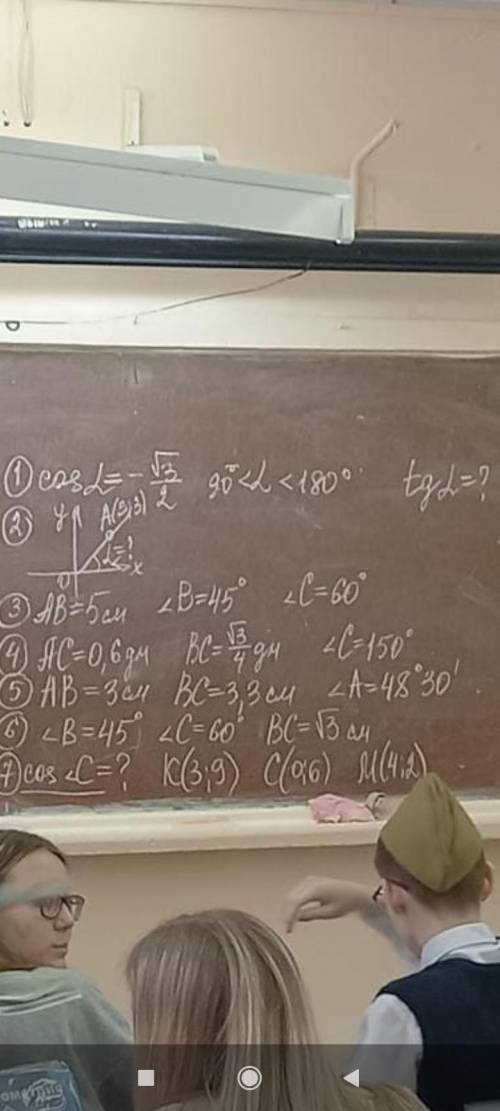 ① cos α = -√3/2 90° < α < 180° tg α = ?
② y A(3;3) α=? 0 x
③ AB = 5 см ∠B = 45° ∠C = 60°
④ AC = 0,6 дм BC = √3/4 дм ∠C = 150°
⑤ AB = 3 см BC = 3,3 см ∠A = 48°30'
⑥ ∠B = 45° ∠C = 60° BC = √3 см
⑦ cos ∠C = ? K(3;9) C(0;6) M(4;2)